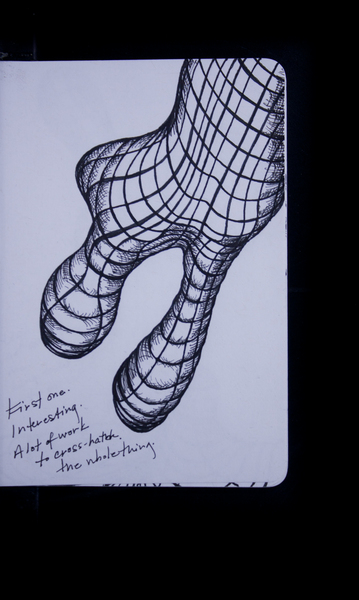 First one.
Interesting.
A lot of work
to cross-hatch
the whole thing.